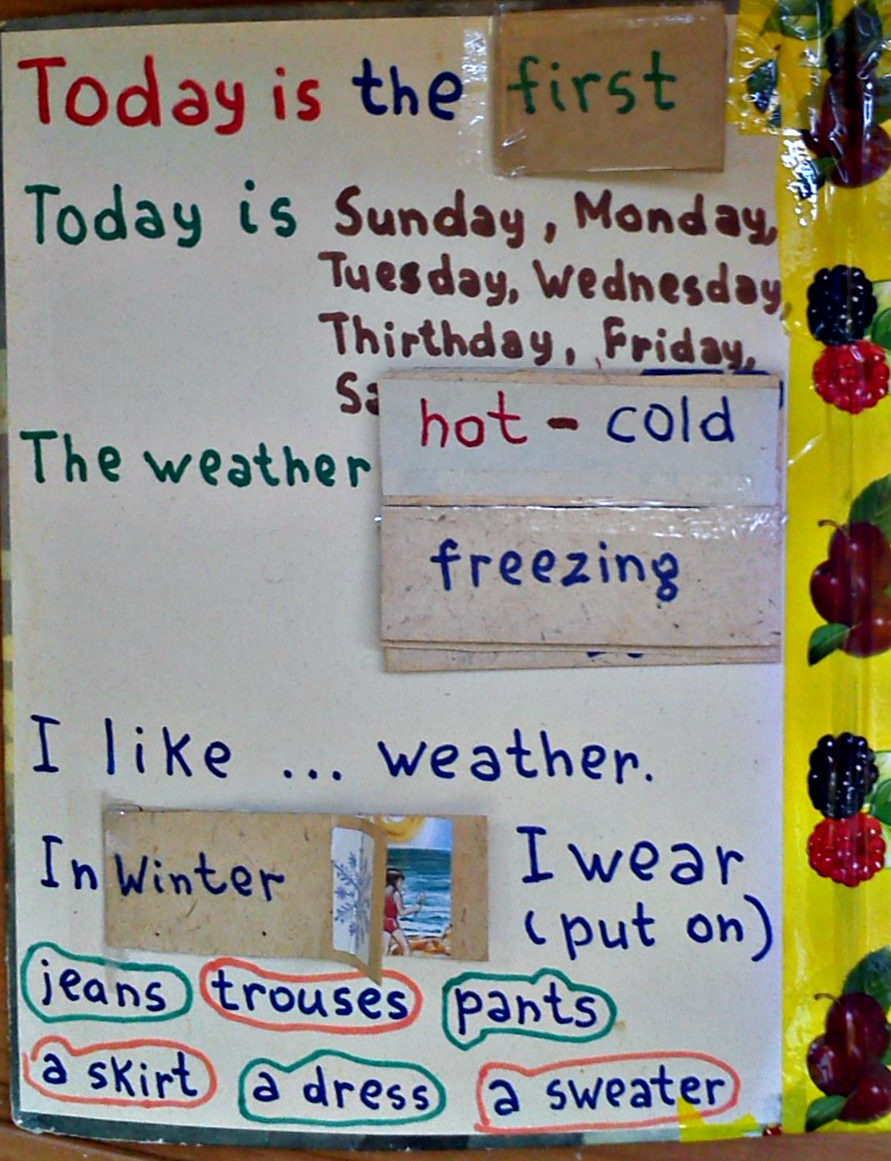 Today is the first
Today is Sunday, Monday,
Tuesday, Wednesday,
Thirthday, Friday,
hot - cold
The weather
freezing
I like ... weather.
In Winter I wear
(put on)
jeans trouses pants
a skirt a dress a sweater